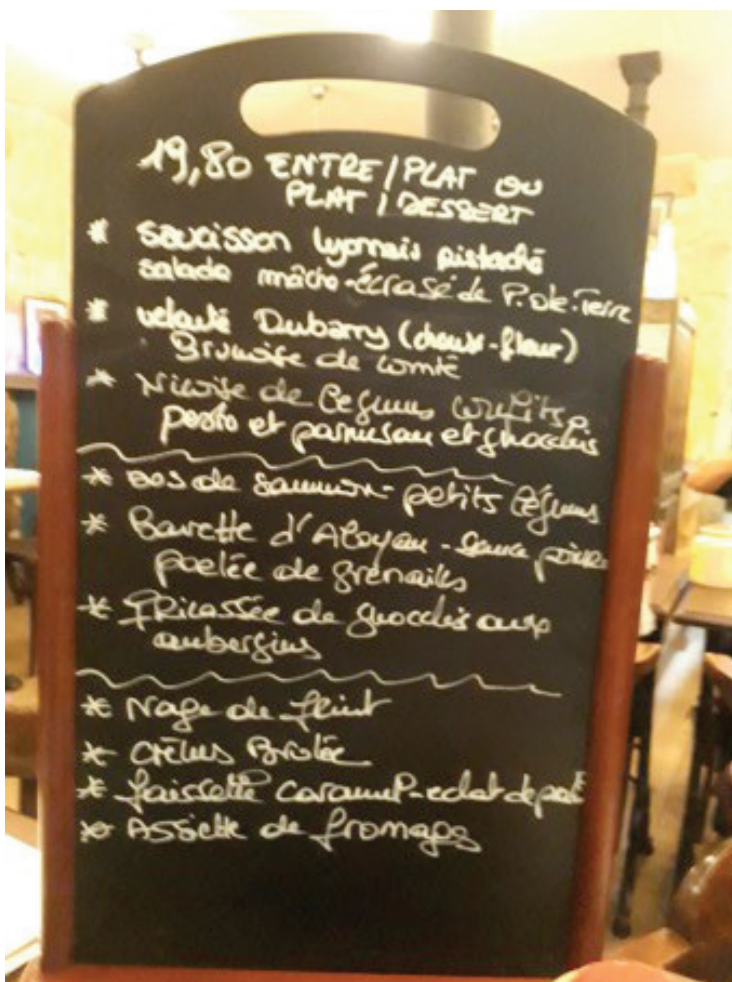 19,80 ENTRE/PLAT OU
PLAT / DESSERT
* saucisson lyonnais pistaché
salade mâche-Écrasé de P. de. Terre
* velouté Dubarry (choux-fleur)
Brunoise de comté
* Niçoise de Légumes confits,
pesto et parmesan et gnocchis
* Dos de saumon - petits légumes
* Bavette d'Aloyau - Sauce
poelée de grenailles
* fricassée de gnocchis aux
aubergines
* Nage de fruit
* crèmes Brulée
* faisselle caramel-eclat de
* Assiette de fromages